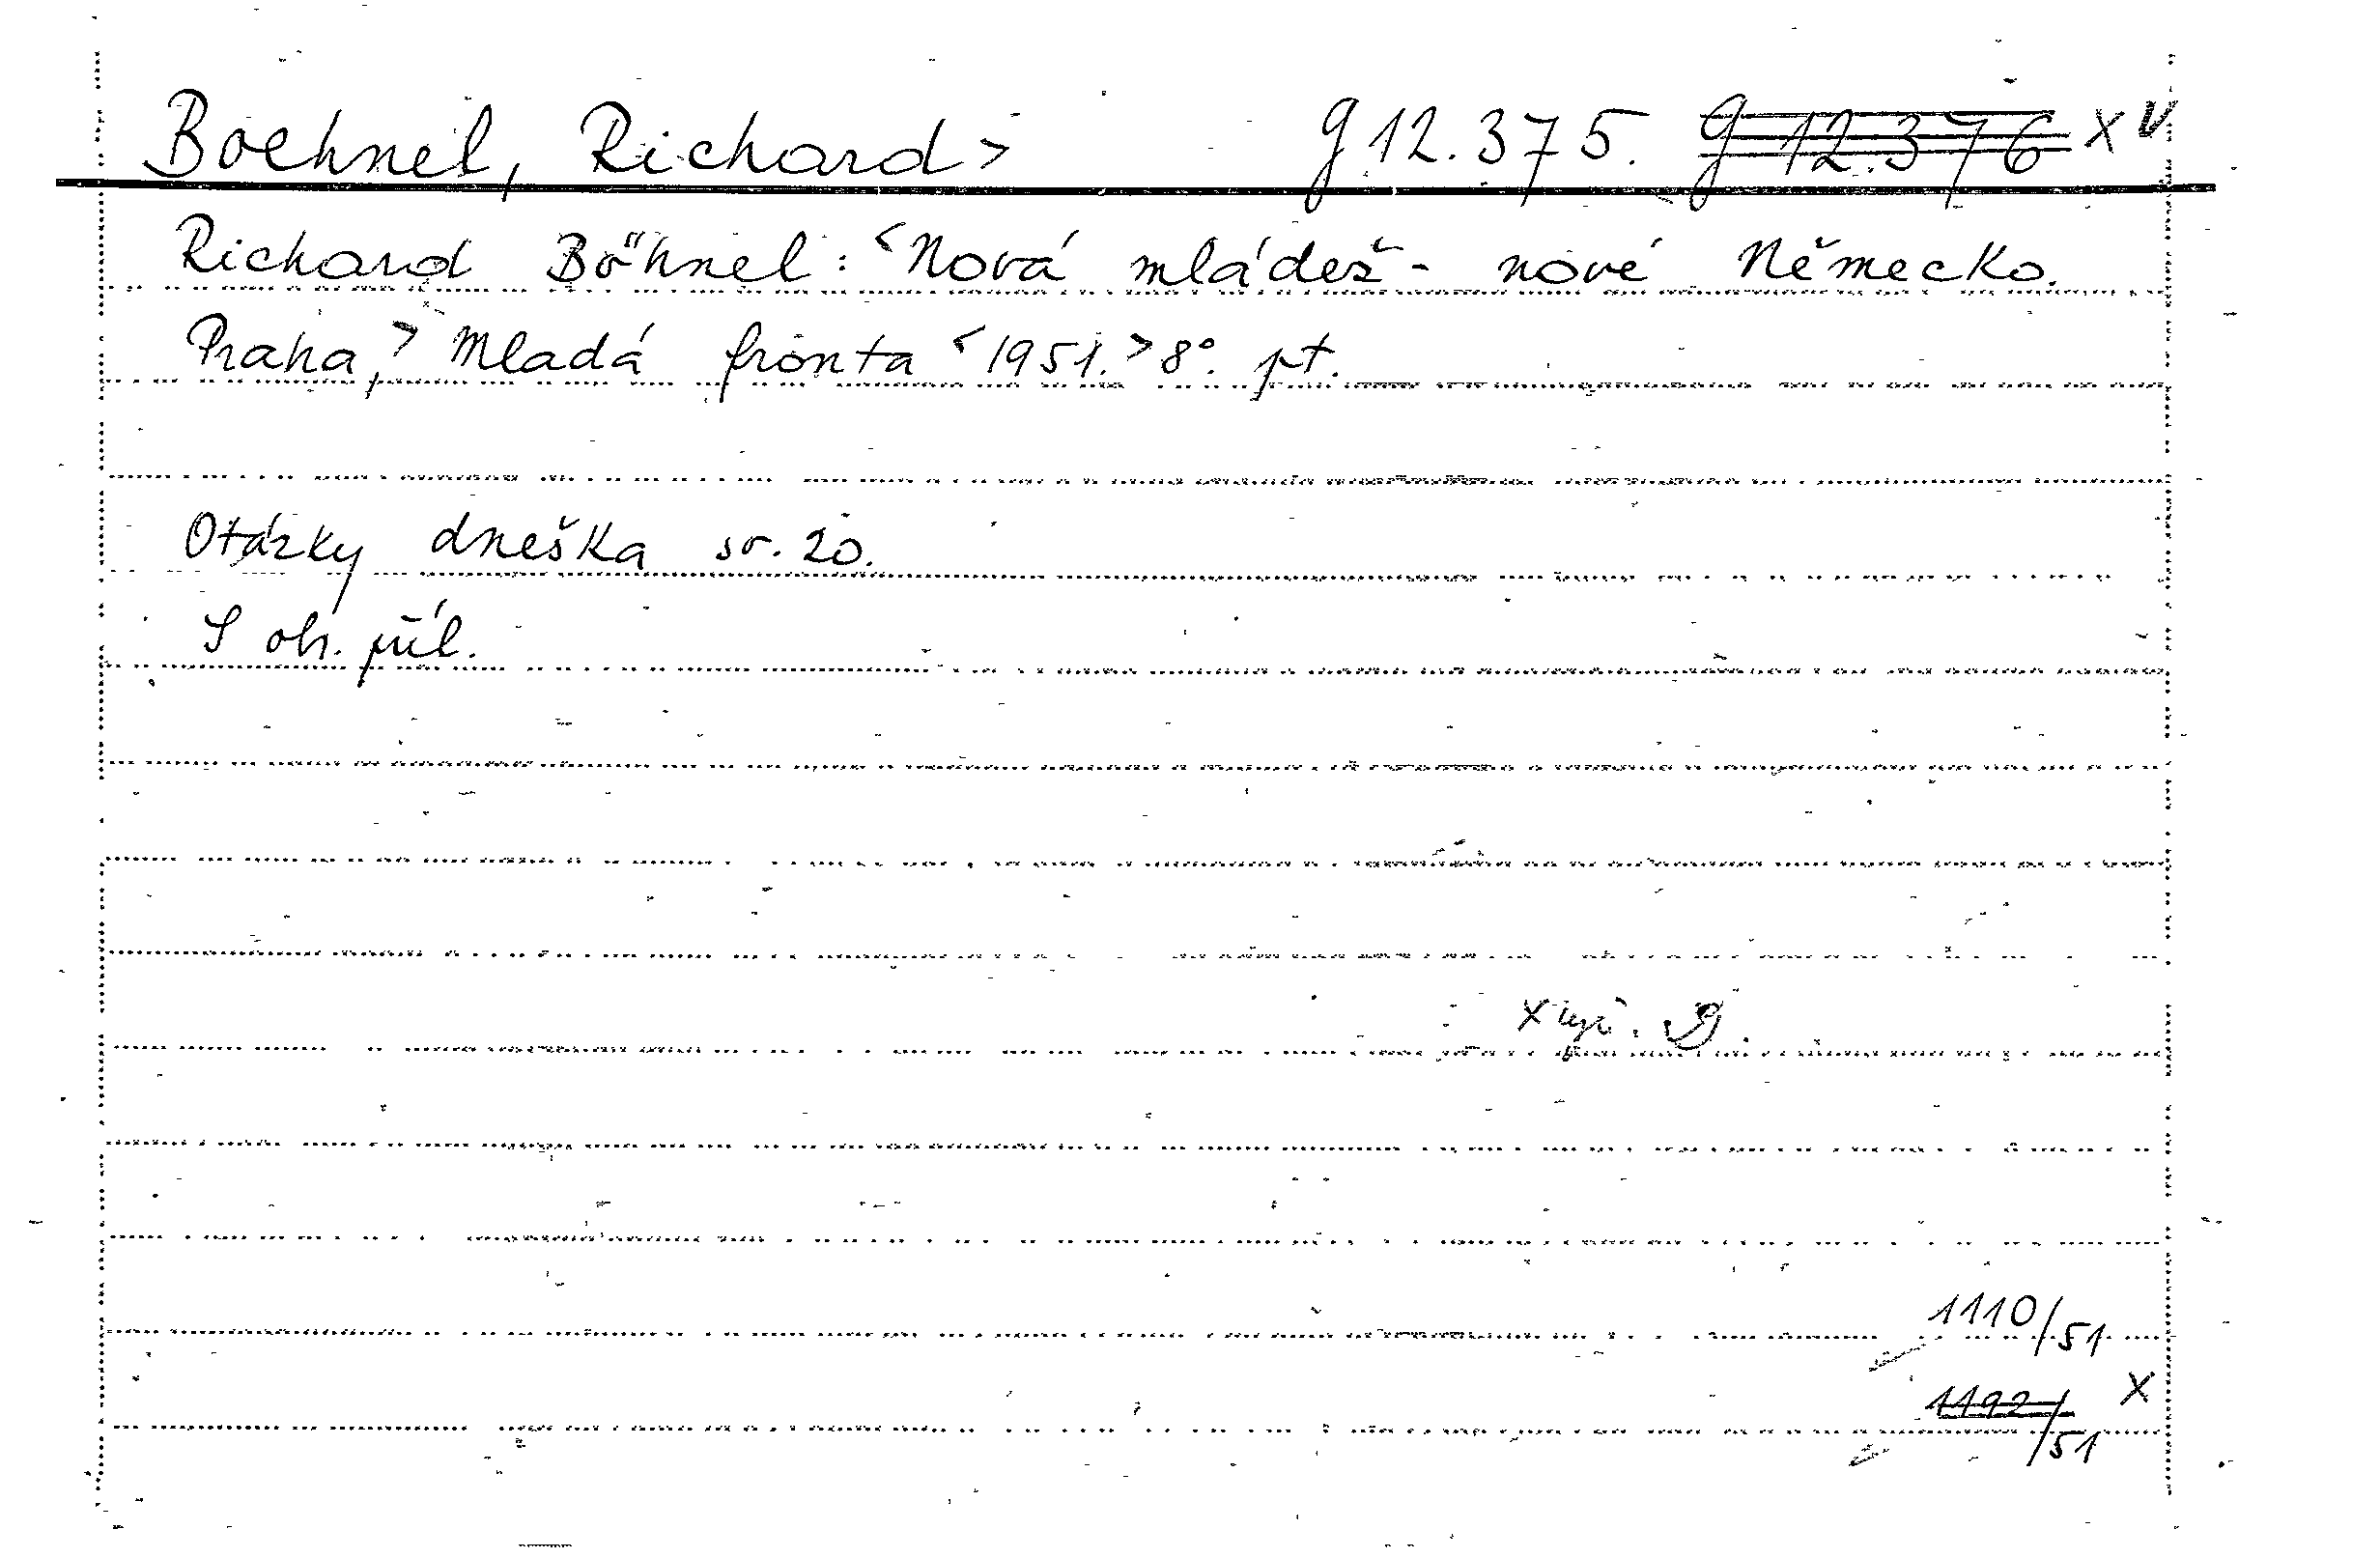 Boehnel, Richard> g 12.375. g 12.376 x V
Richard Böhnel: <Nová mládež - nové Německo.
Praha,> Mladá fronta <1951.> 8°. pt.
Otázky dneška sv. 20.
S obr. příl.
x
1110/51
1192/51 x